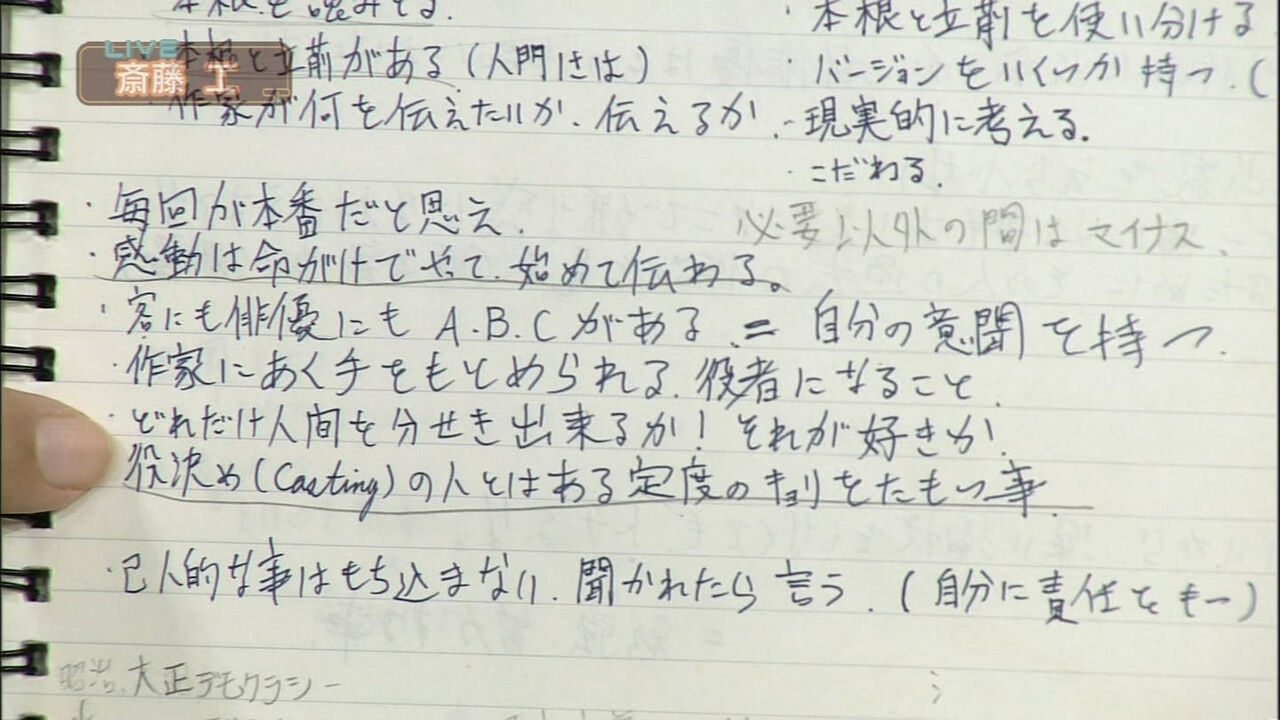 LIVE
斎藤 工
本根を読みとる.
・本根と立前を使い分ける
本根と立前がある (人間には)
・バージョンをいくつか持つ. (
・作家が何を伝えたいか. 伝えるか.
・現実的に考える.
・こだわる.
・毎回が本番だと思え.
必要以外の間はマイナス.
・感動は命がけでやって. 始めて伝わる。
・客にも俳優にも A.B.C がある. = 自分の意聞を持つ.
・作家にあく手をもとめられる. 役者になること.
・どれだけ人間を分せき出来るか! それが好きか.
役決め (Casting) の人とはある定度のキョリをたもつ事.
・己人的な事はもち込まない. 聞かれたら言う. (自分に責任をもつ)
大正デモクラシー